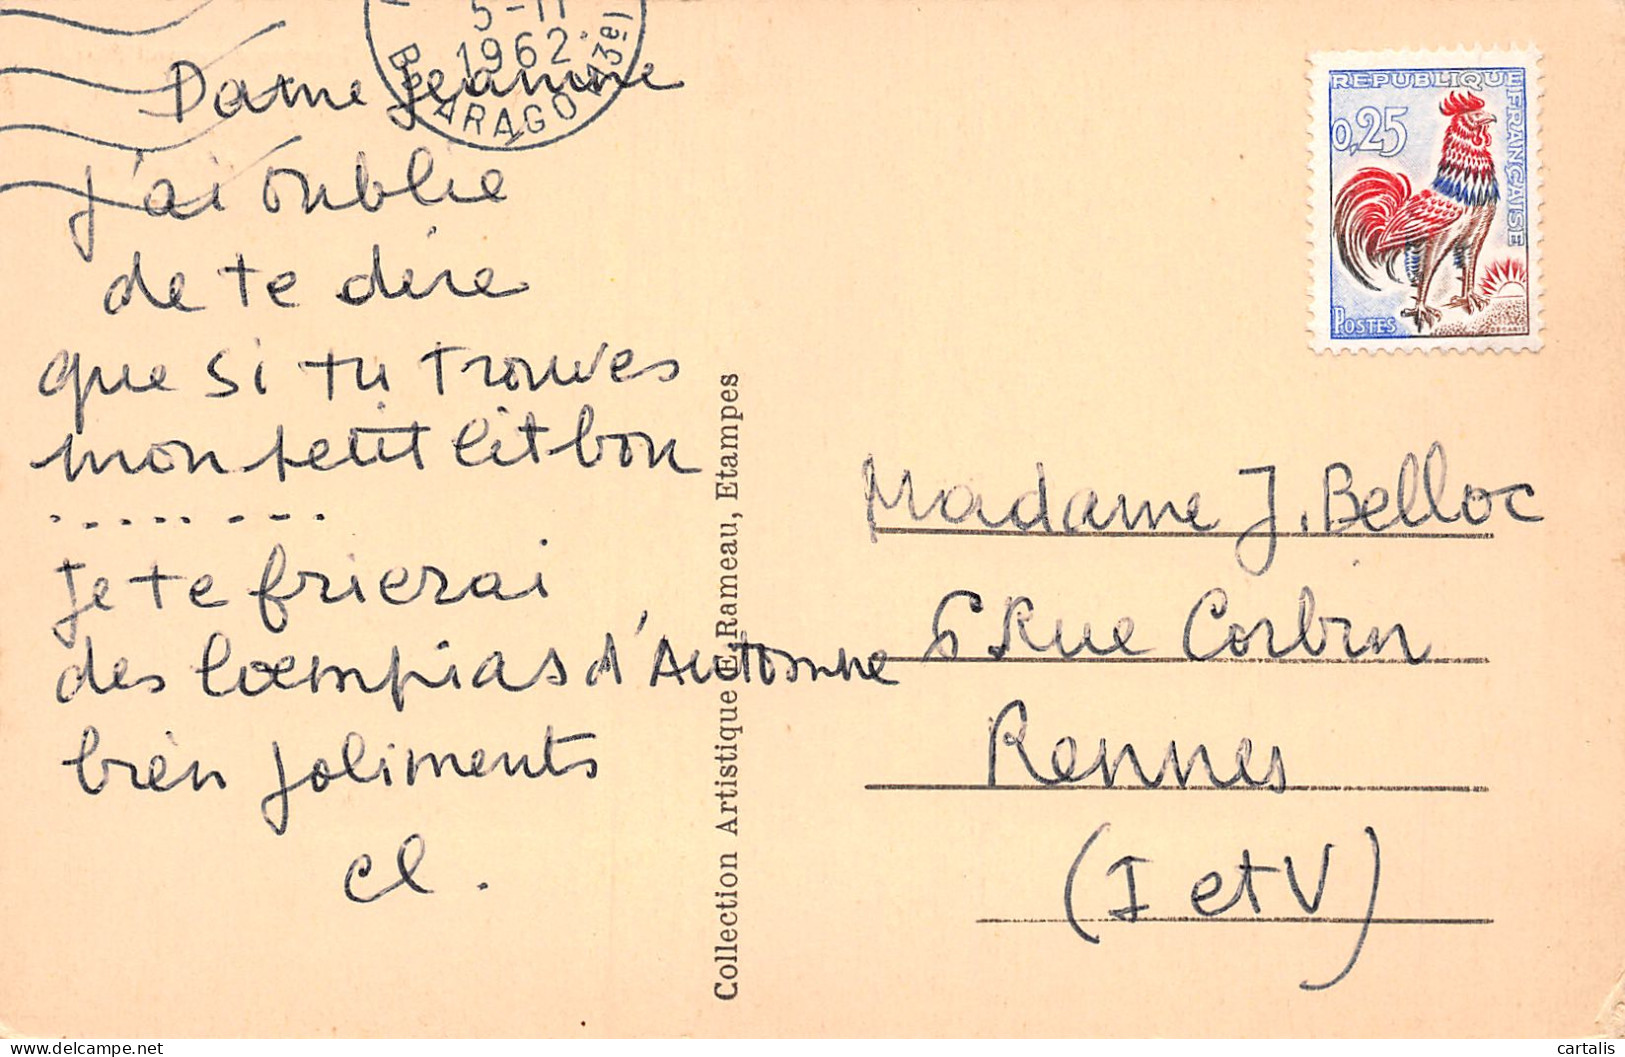 5-11
1962
ARAGO (13e)
Dame Jeannine
j'ai oublié
de te dire
que si tu trouves
mon petit lit bon
........
je te
des d'Automne
bien joliments
cl.
Collection Artistique E. Rameau, Etampes
REPUBLIQUE FRANÇAISE
0,25
POSTES
Madame J. Belloc
6 Rue Corbin
Rennes
(I et V)
cartalis